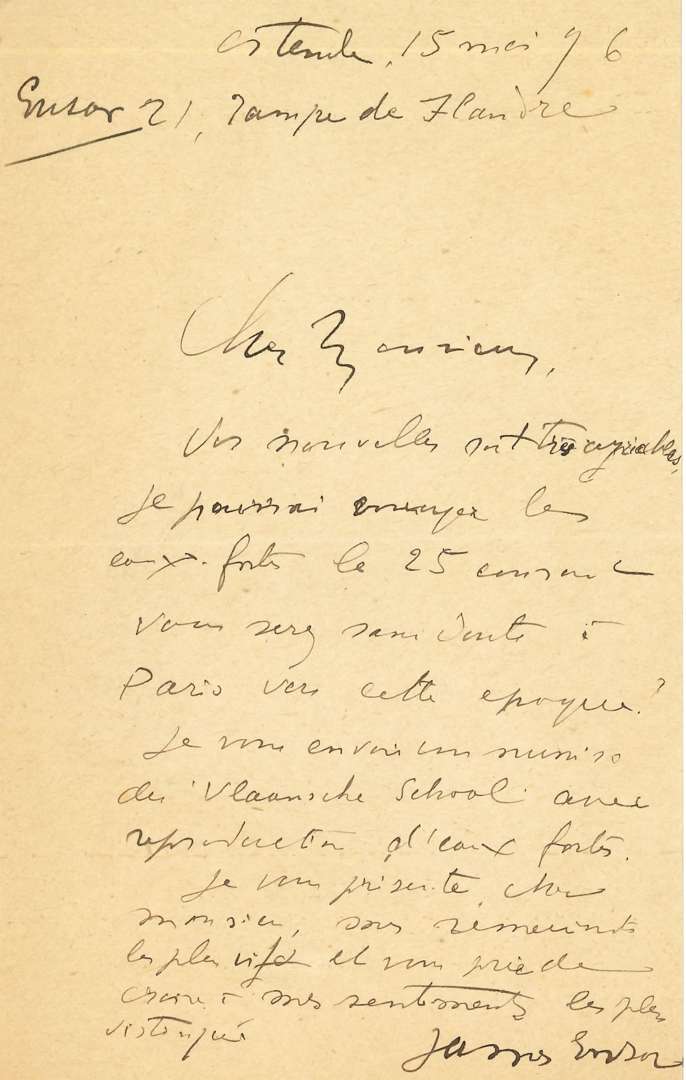 Ostende, 15 mai 96
Ensor 21, rampe de Flandre
Cher Monsieur,
Vos nouvelles sont très agréables,
je pourrai envoyer les
eaux-fortes le 25 courant
vous serez sans doute à
Paris vers cette epoque?
Je vous envoie un numéro
du Vlaamsche School avec
reproduction d'eaux fortes.
Je vous présente, cher
monsieur, mes remerciments
les plus vifs et vous prie de
croire à mes sentiments les plus
distingués
James Ensor